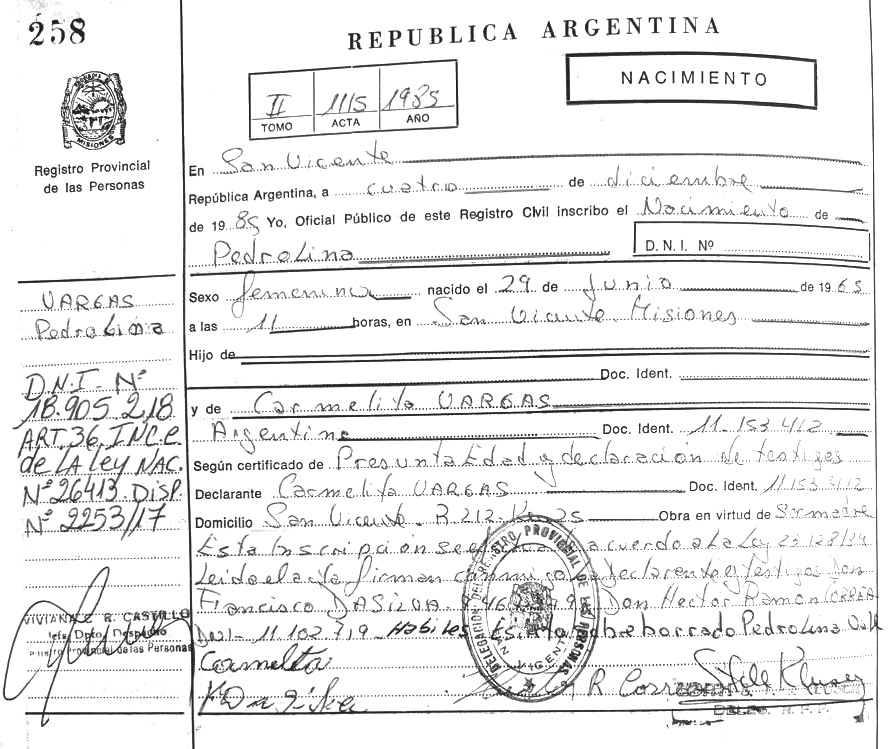 258
REPUBLICA ARGENTINA
NACIMIENTO
II 1115 1985
TOMO ACTA AÑO
MISIONES
Registro Provincial
de las Personas
En San Vicente
República Argentina, a cuatro de diciembre
de 1985 Yo, Oficial Público de este Registro Civil inscribo el Nacimiento de
Pedrolina D.N.I. Nº
Sexo femenino nacido el 29 de Junio de 1965
a las 11 horas, en San Vicente Misiones
Hijo de
Doc. Ident.
y de Carmelita VARGAS
Argentina Doc. Ident. 11.153.412
Según certificado de Presunta Edad y declaración de testigos
Declarante Carmelita VARGAS Doc. Ident. 11.153.412
Domicilio San Vicente R 212 Obra en virtud de Ser madre
Esta Inscripción se acuerdo a la Ley
Leida el acta firman conmigo declarante y testigos Don
Francisco DASILVA Don Hector Ramon CORREA
DNI 11.102.719 Habiles borrado Pedrolina
Carmelita
R Correa
VARGAS
Pedrolina
D.N.I. Nº
18.905.218
ART. 36, INC. e
de LA Ley NAC.
Nº 26413 DISP.
Nº 2253/17
VIVIANA R. CASTILLO
Jefa Dpto. Despacho
Registro Provincial de las Personas
DELEGACION DEL REGISTRO PROVINCIAL DE LAS PERSONAS